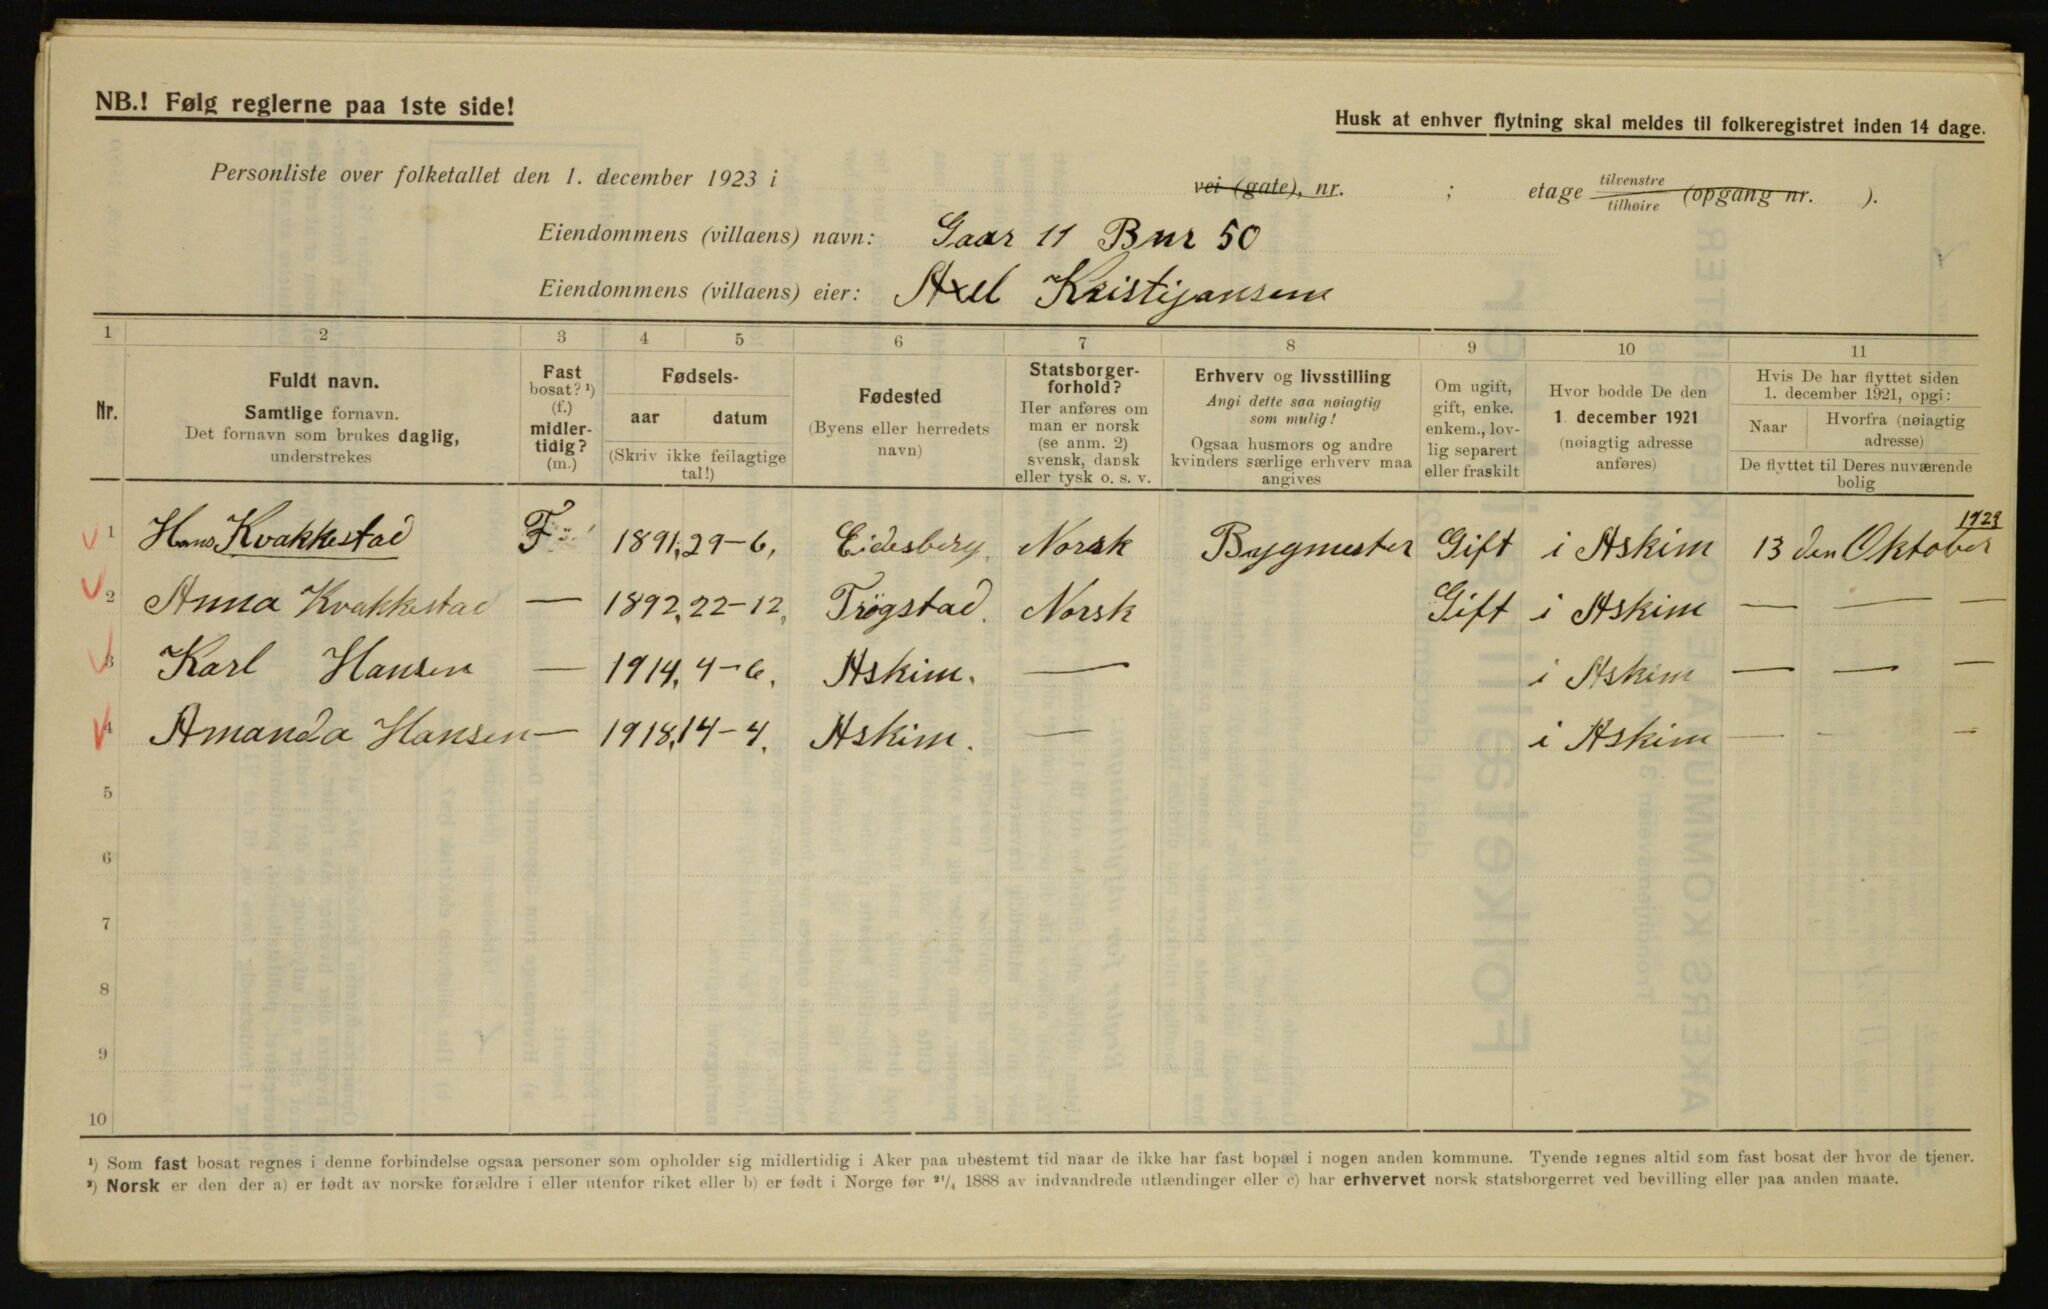 NB.! Følg reglerne paa 1ste side!
Husk at enhver flytning skal meldes til folkeregistret inden 14 dage.
Personliste over folketallet den 1. december 1923 i vei (gate), nr. ; etage tilvenstre tilhøire (opgang nr. ).
Eiendommens (villaens) navn: Gaar 11 Bnr 50
Eiendommens (villaens) eier: Axel Kristijansen
1 2 3 4 5 6 7 8 9 10 11
Nr.
Fuldt navn.
Samtlige fornavn.
Det fornavn som brukes daglig,
understrekes
Fast
bosat? ¹)
(f.)
midler-
tidig?
(m.)
Fødsels-
aar datum
(Skriv ikke feilagtige
tal!)
Fødested
(Byens eller herredets
navn)
Statsborger-
forhold?
Her anføres om
man er norsk
(se anm. 2)
svensk, dansk
eller tysk o. s. v.
Erhverv og livsstilling
Angi dette saa nøiagtig
som mulig!
Ogsaa husmors og andre
kvinders særlige erhverv maa
angives
Om ugift,
gift, enke.
enkem., lov-
lig separert
eller fraskilt
Hvor bodde De den
1. december 1921
(nøiagtig adresse
anføres)
Hvis De har flyttet siden
1. december 1921, opgi:
Naar Hvorfra (nøiagtig
adresse)
De flyttet til Deres nuværende
bolig
1923
1 Hans Kvakkestad F 1891, 29-6, Eidesberg. Norsk Bygmester Gift i Askim 13 den Oktober
2 Anna Kvakkestad — 1892, 22-12, Trøgstad. Norsk Gift i Askim — — —
3 Karl Hansen — 1914, 4-6, Askim. — i Askim — — —
4 Amanda Hansen — 1918, 14-4, Askim. — i Askim — — —
5
6
7
8
9
10
¹) Som fast bosat regnes i denne forbindelse ogsaa personer som opholder sig midlertidig i Aker paa ubestemt tid naar de ikke har fast bopæl i nogen anden kommune. Tyende regnes altid som fast bosat der hvor de tjener.
²) Norsk er den der a) er født av norske forældre i eller utenfor riket eller b) er født i Norge før ²¹/₄ 1888 av indvandrede utlændinger eller c) har erhvervet norsk statsborgerret ved bevilling eller paa anden maate.